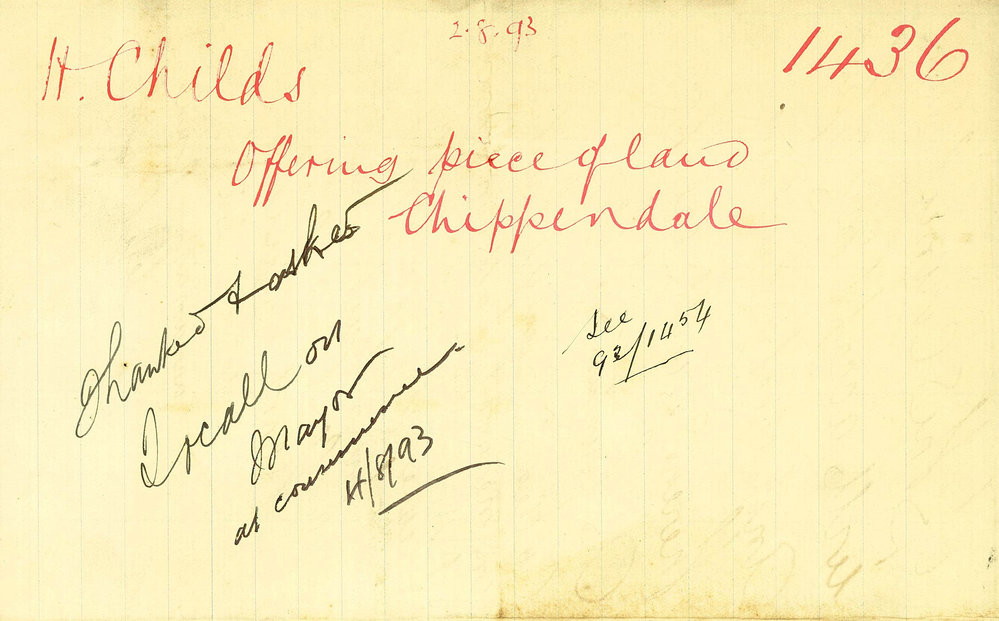 2.8.93
H. Childs
1436
Offering piece of land
Chippendale
Thanked & asked
to call on
Mayor
at convenience
4/8/93
See
93/1454